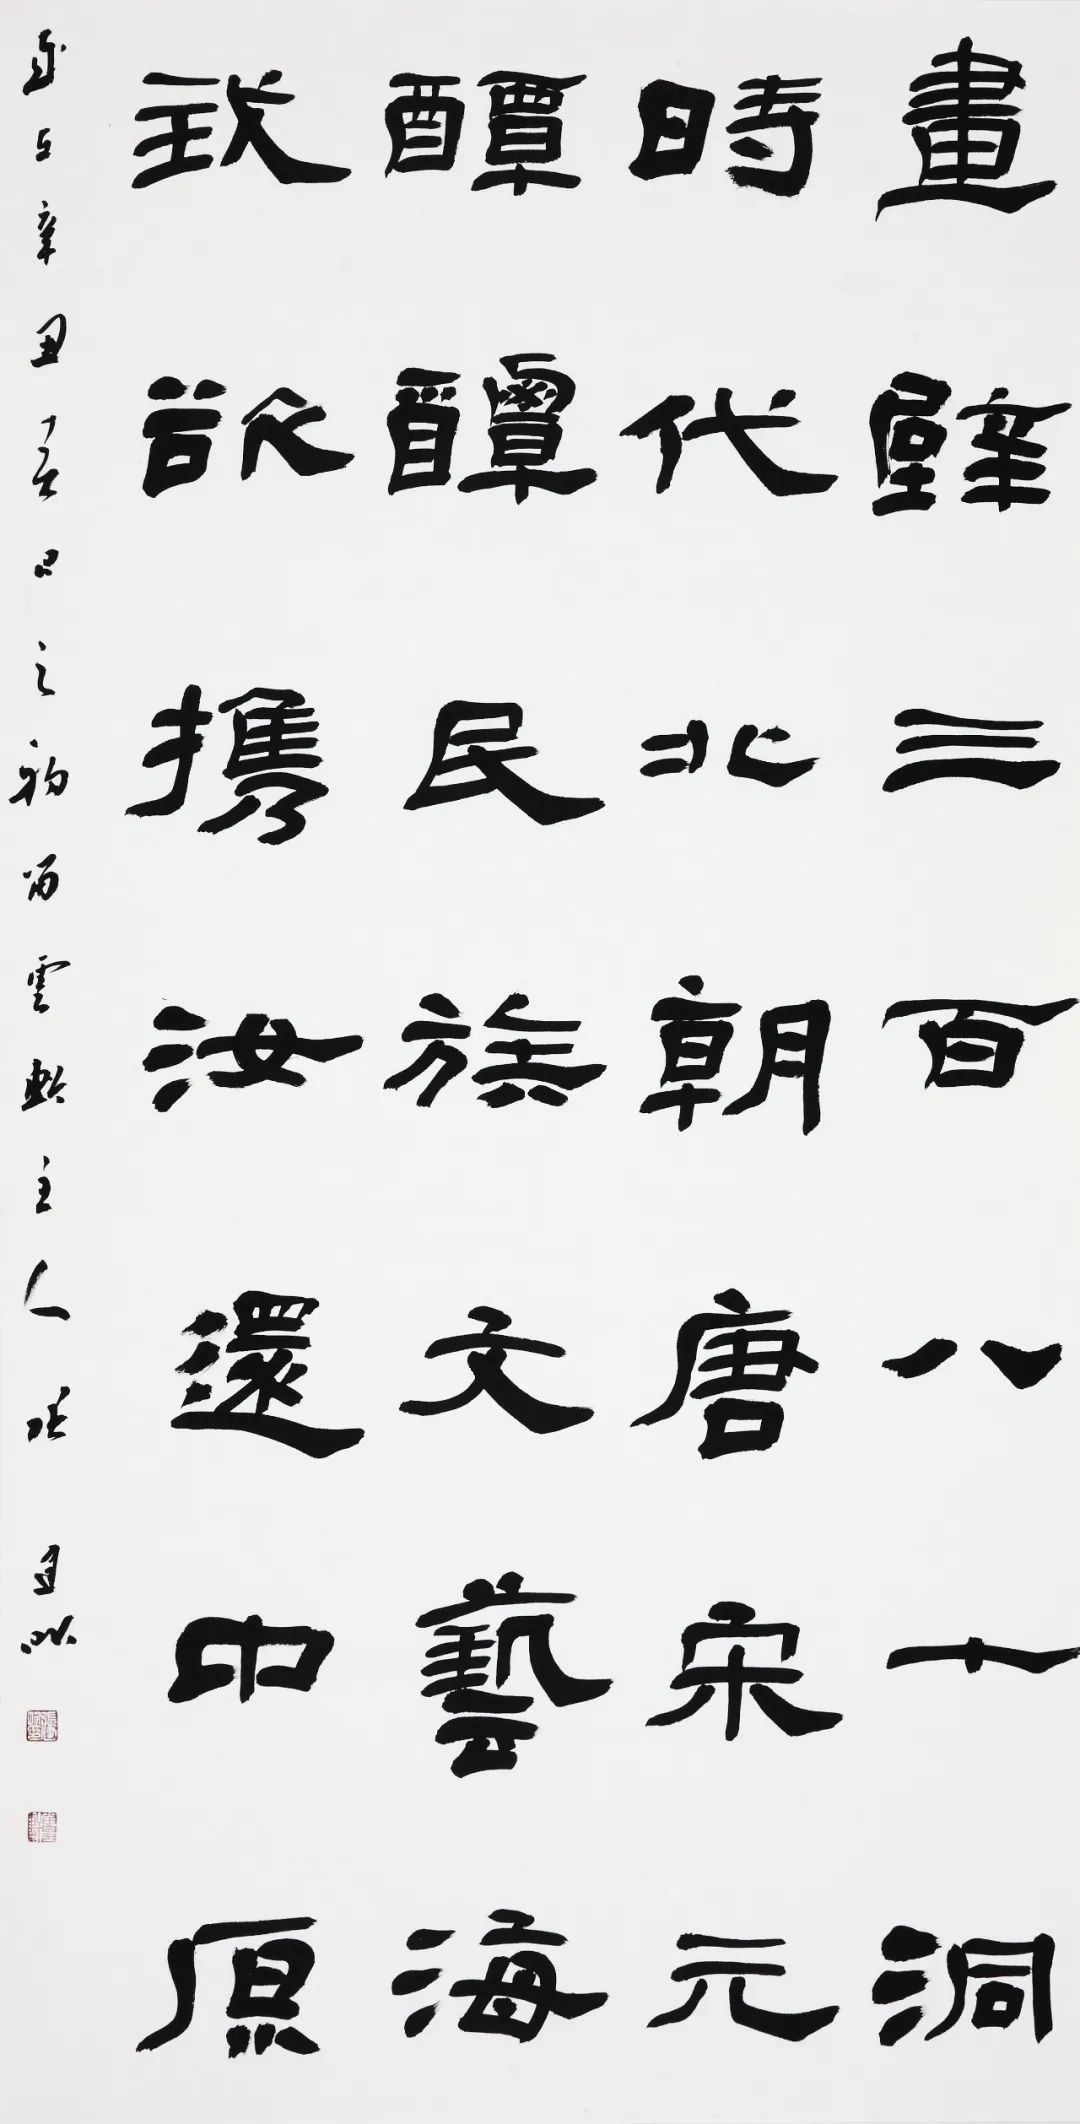 畫壁三百八十洞
時代北朝唐宋元
醰醰民族文藝海
我欲携汝還中原
歲在辛丑日之初留雲軒主人張建